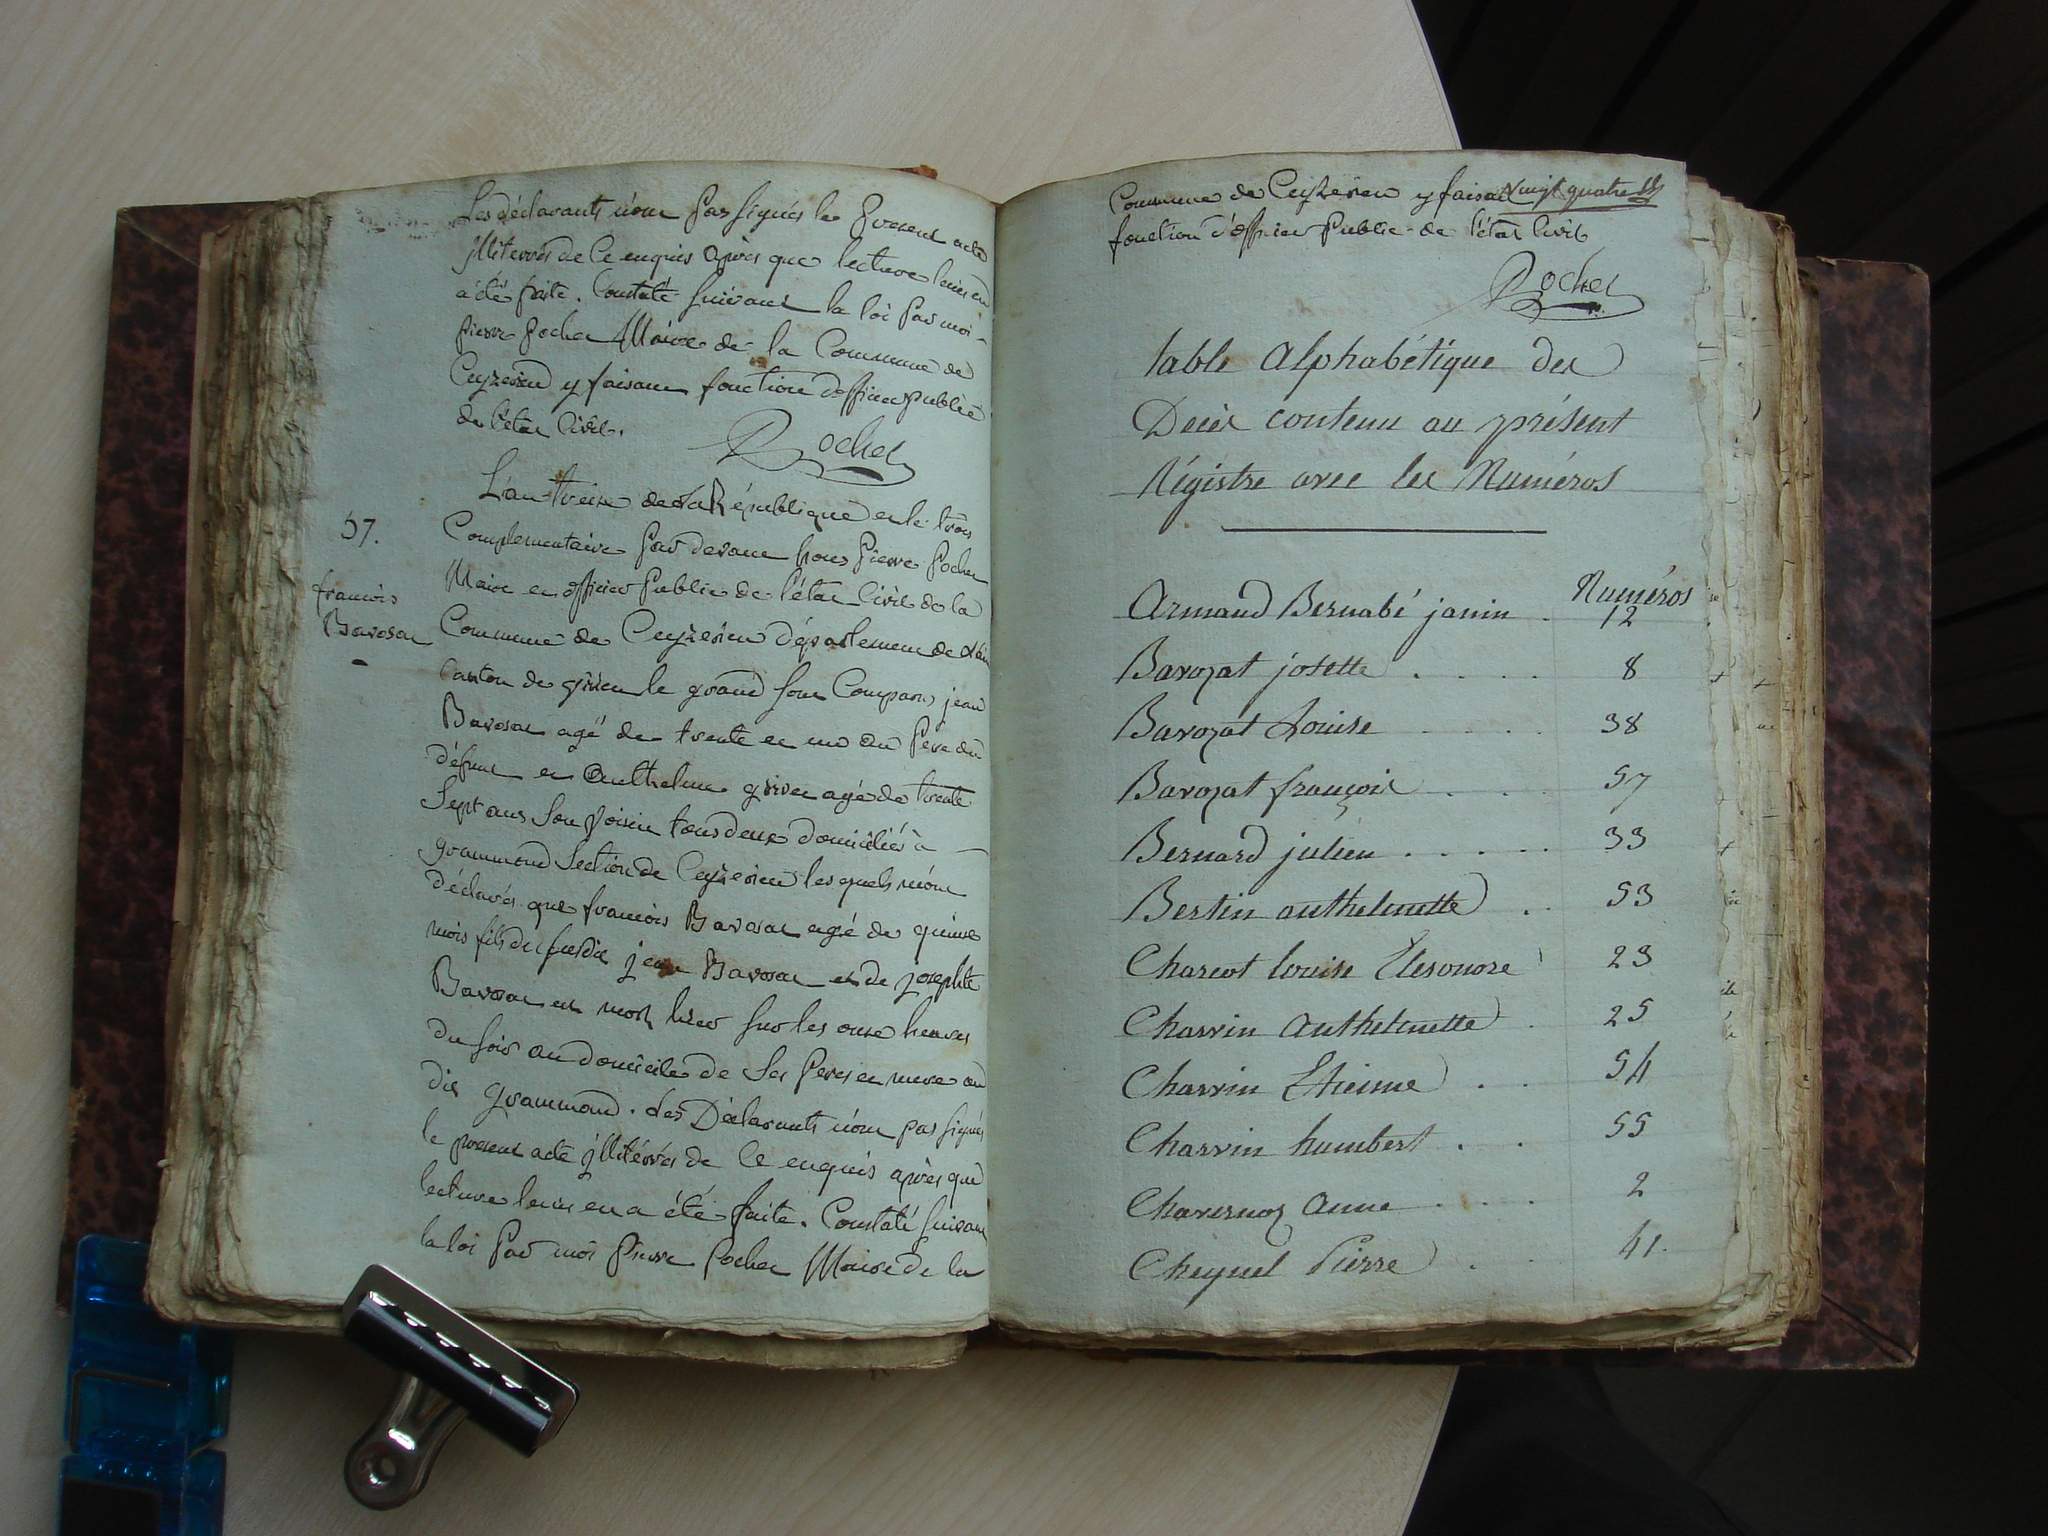 Les déclarants n'ont pas signés le present acte
illiterrés de ce enquis après que lecture leurs en
a été faite. Constaté suivant la loi par moi
pierre Rochet Maire de la Commune de
Ceyzerieu y faisant fonction d'officier public
de l'état Civil.
Rochet
57.
francois
Barosat
L'an treize de la République et le trois
Complementaire par devant Nous Pierre Rochet
Maire et officier Public de l'état Civil de la
Commune de Ceyzerieu Département de L'ain
Canton de virieu le grand sont Comparus jean
Barosat agé de trente et un an Pere du
défunt et Anthelme grivet agé de trente
Sept ans son Voisin tous deux domiciliés à
grammond Section de Ceyzerieu les quels m'ont
déclarés que francois Barosat agé de quinze
mois fils du susdit jean Barosat et de josephte
Barosat est mort hier sur les onze heures
du soir au domicile de ses Peres et mere au
dit grammond. Les Déclarants n'ont pas signés
le present acte illitérrés de Ce enquis après que
lecture leurs en a été faite. Constaté suivant
la loi par moi Pierre Rochet Maire de la
Commune de Ceyzerieu y faisant vingt quatre
fonction d'officier Public de l'état Civil
Rochet
table Alphabétique des
Décès contenu au présent
Régistre avec les Numéros
Numéros
Armand Bernabé janin . 12
Barozat josette . . . . . 8
Barozat Louise . . . . . 38
Barozat françois . . . . 57
Bernard julien . . . . . . 33
Bertin anthelmette . . 53
Charcot louise Elesonore 23
Charvin Anthelmette . 25
Charvin Etienne . . 54
Charvin humbert . . 55
Chavernoz Anne . . . . 2
Cheynel Pierre . . 41.